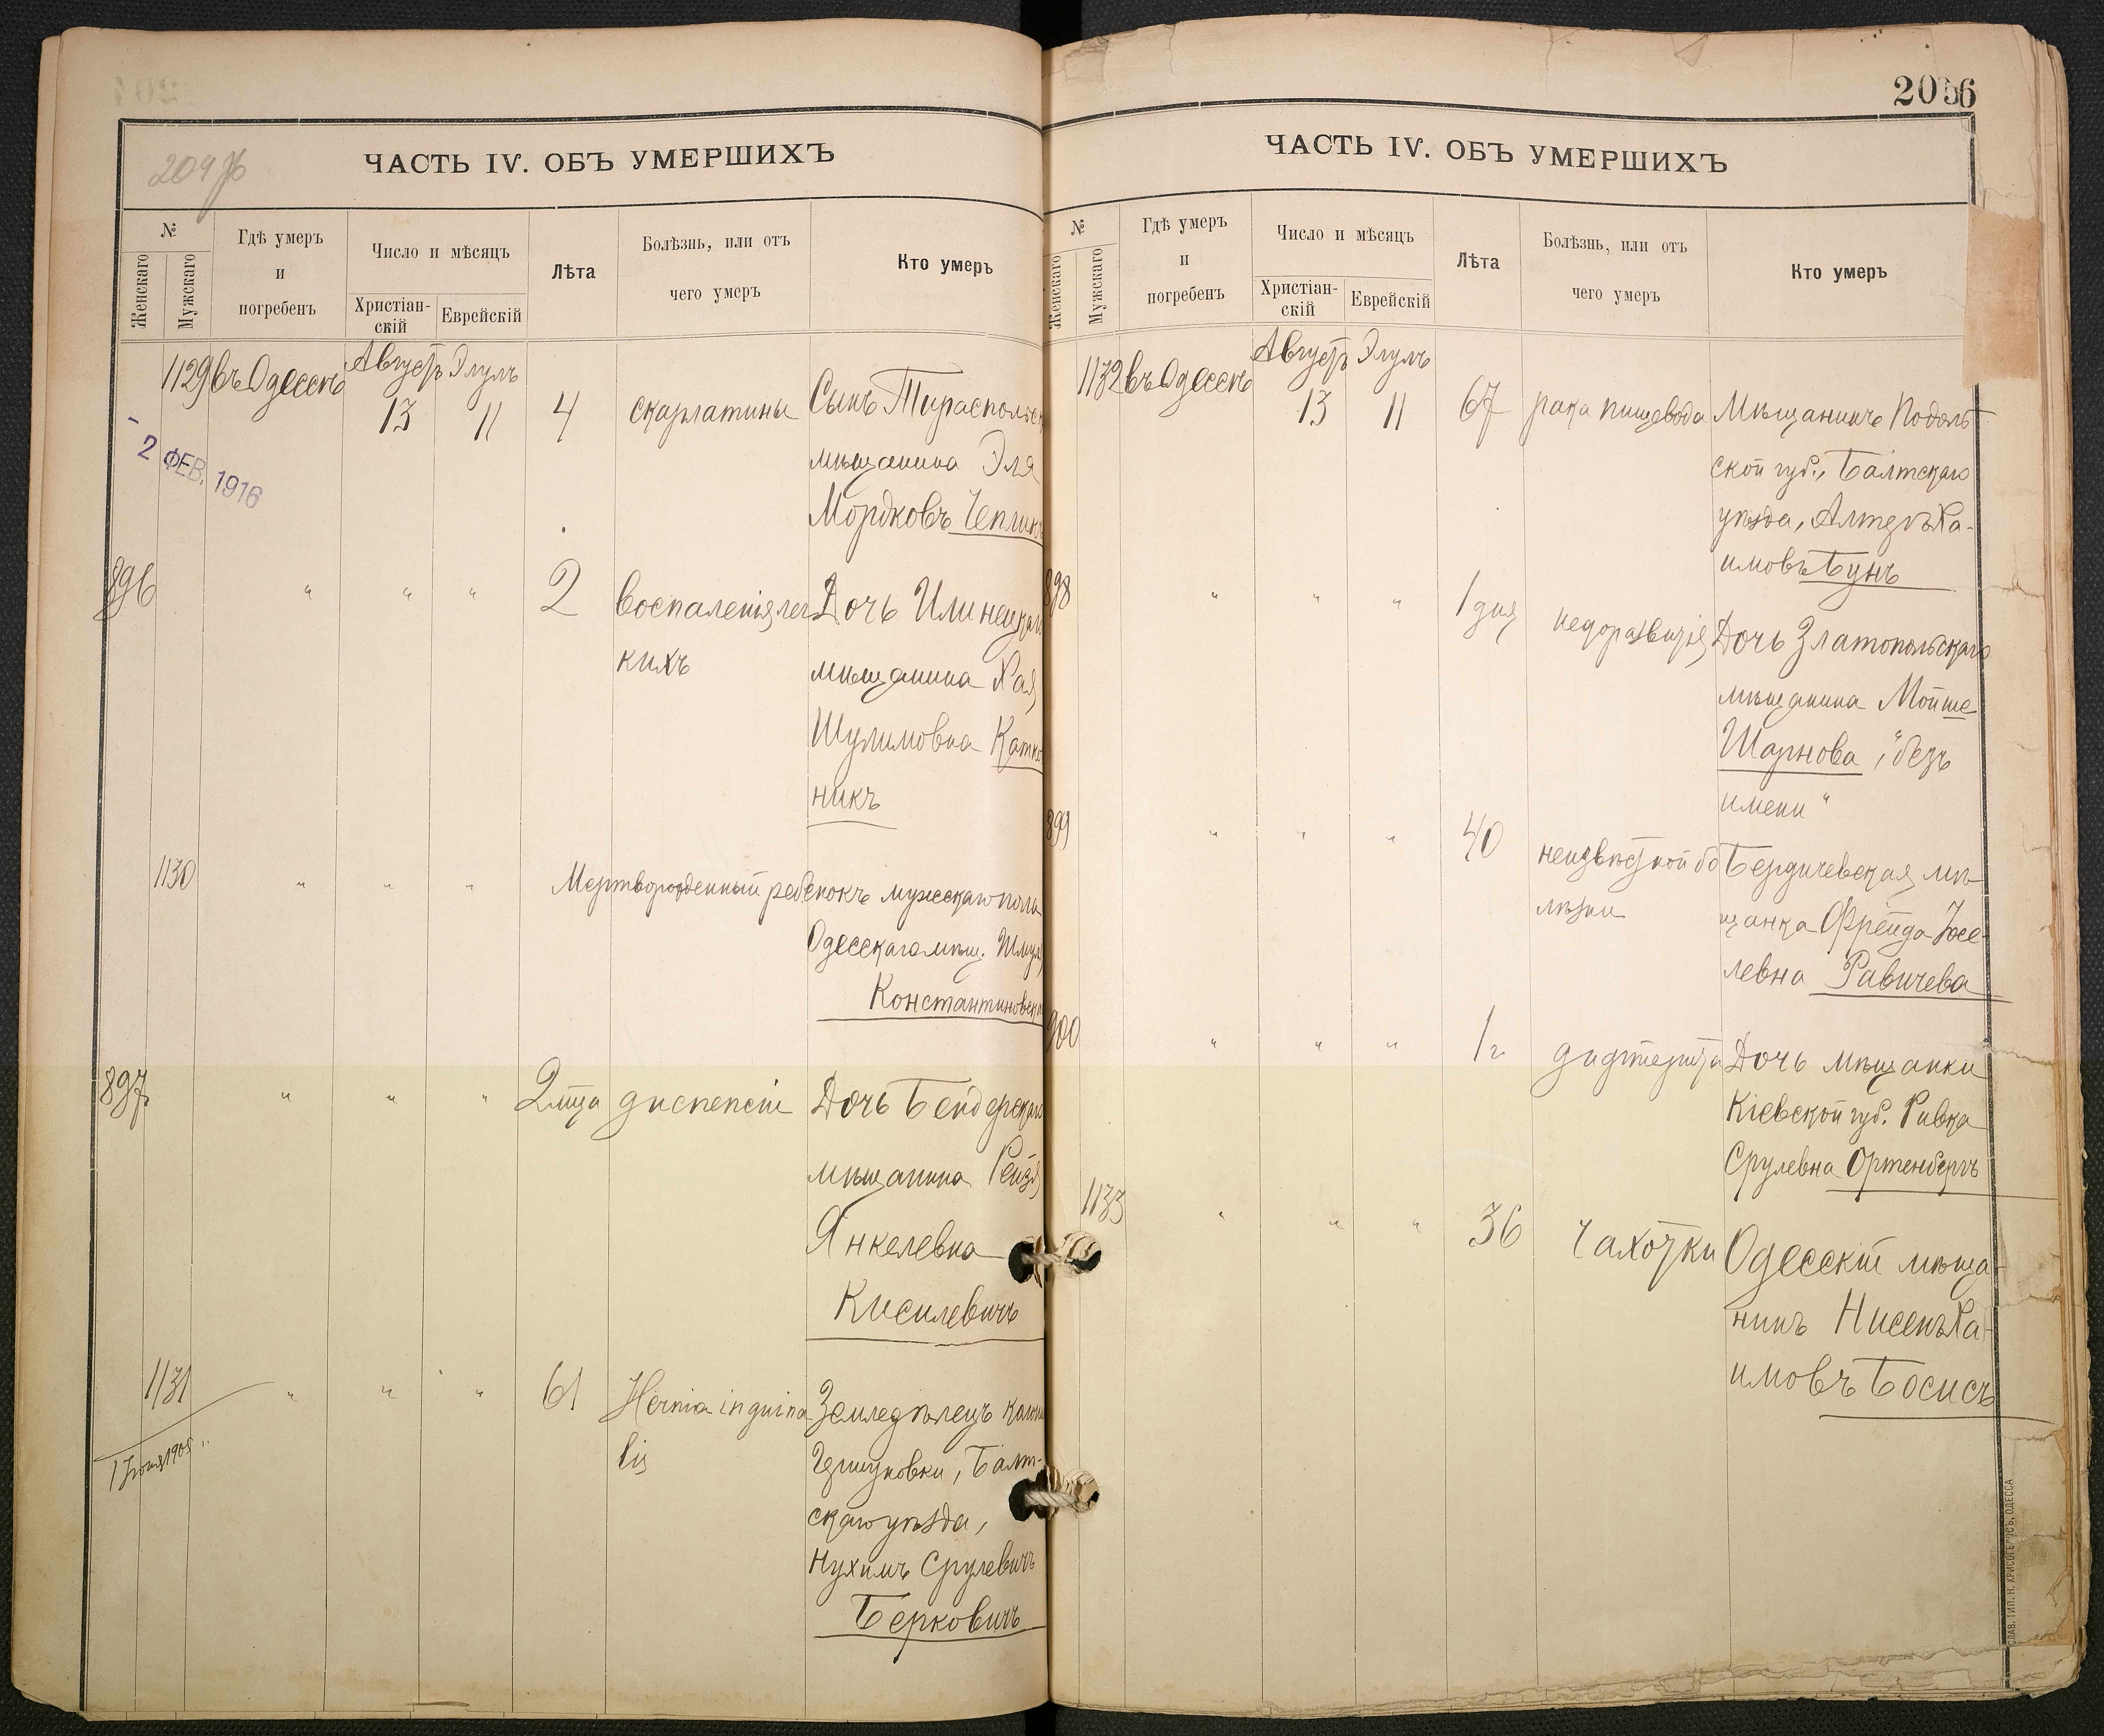 ЧАСТЬ IV. ОБЪ УМЕРШИХЪ
№
Женскаго
Мужскаго
Гдѣ умеръ
и
погребенъ
Число и мѣсяцъ
Христіан-
скій
Еврейскій
Лѣта
Болѣзнь, или отъ
чего умеръ
Кто умеръ
1129 въ Одессѣ Августъ Элулъ
13 11 4 скарлатины Сынъ Тираспольск
мѣщанина Эля
Мордковъ Чеплик
- 2 ФЕВ. 1916
896 " " " 2 Воспаленія лег Дочь Илинецкаго
кихъ мѣщанина Хая
Шулимовна
никъ
1130 " " " Мертворожденный ребенокъ мужскаго пола
Одесскаго мѣщ. Шмуля
Константиновск
897 " " " 2 м-ца диспепсіи Дочь Бендерскаго
мѣщанина Рейзя
Янкелевна
Кисилевичъ
1131 " " " 61 Hernia inguina Земледѣлецъ
lis , Балт-
скаго уѣзда,
Нухимъ Срулевичъ
Берковичъ
2056
ЧАСТЬ IV. ОБЪ УМЕРШИХЪ
№
Женскаго
Мужскаго
Гдѣ умеръ
и
погребенъ
Число и мѣсяцъ
Христіан-
скій
Еврейскій
Лѣта
Болѣзнь, или отъ
чего умеръ
Кто умеръ
1132 въ Одессѣ Августъ Элулъ
13 11 67 рака пищевода Мѣщанинъ Подоль
ской губ., Балтскаго
уѣзда, Алтеръ Ха-
имовъ Бунъ
898 " " " 1 дня недоразвитія Дочь Златопольскаго
мѣщанина Мойше
Шарнова, "безъ
имени"
899 " " " 40 неизвѣстной бо Бердичевская мѣ-
лѣзни щанка Фрейда Іосе-
левна Равичева
900 " " " 1 г дифтерита Дочь мѣщанки
Кіевской губ. Ривка
Срулевна Ортенбергъ
1133 " " " 36 Чахотки Одесскій мѣща-
нинъ Нисенъ Ха-
имовъ Босисъ
СЛАВ. ТИП. Н. ХРИСОГЕЛОСЪ, ОДЕССА